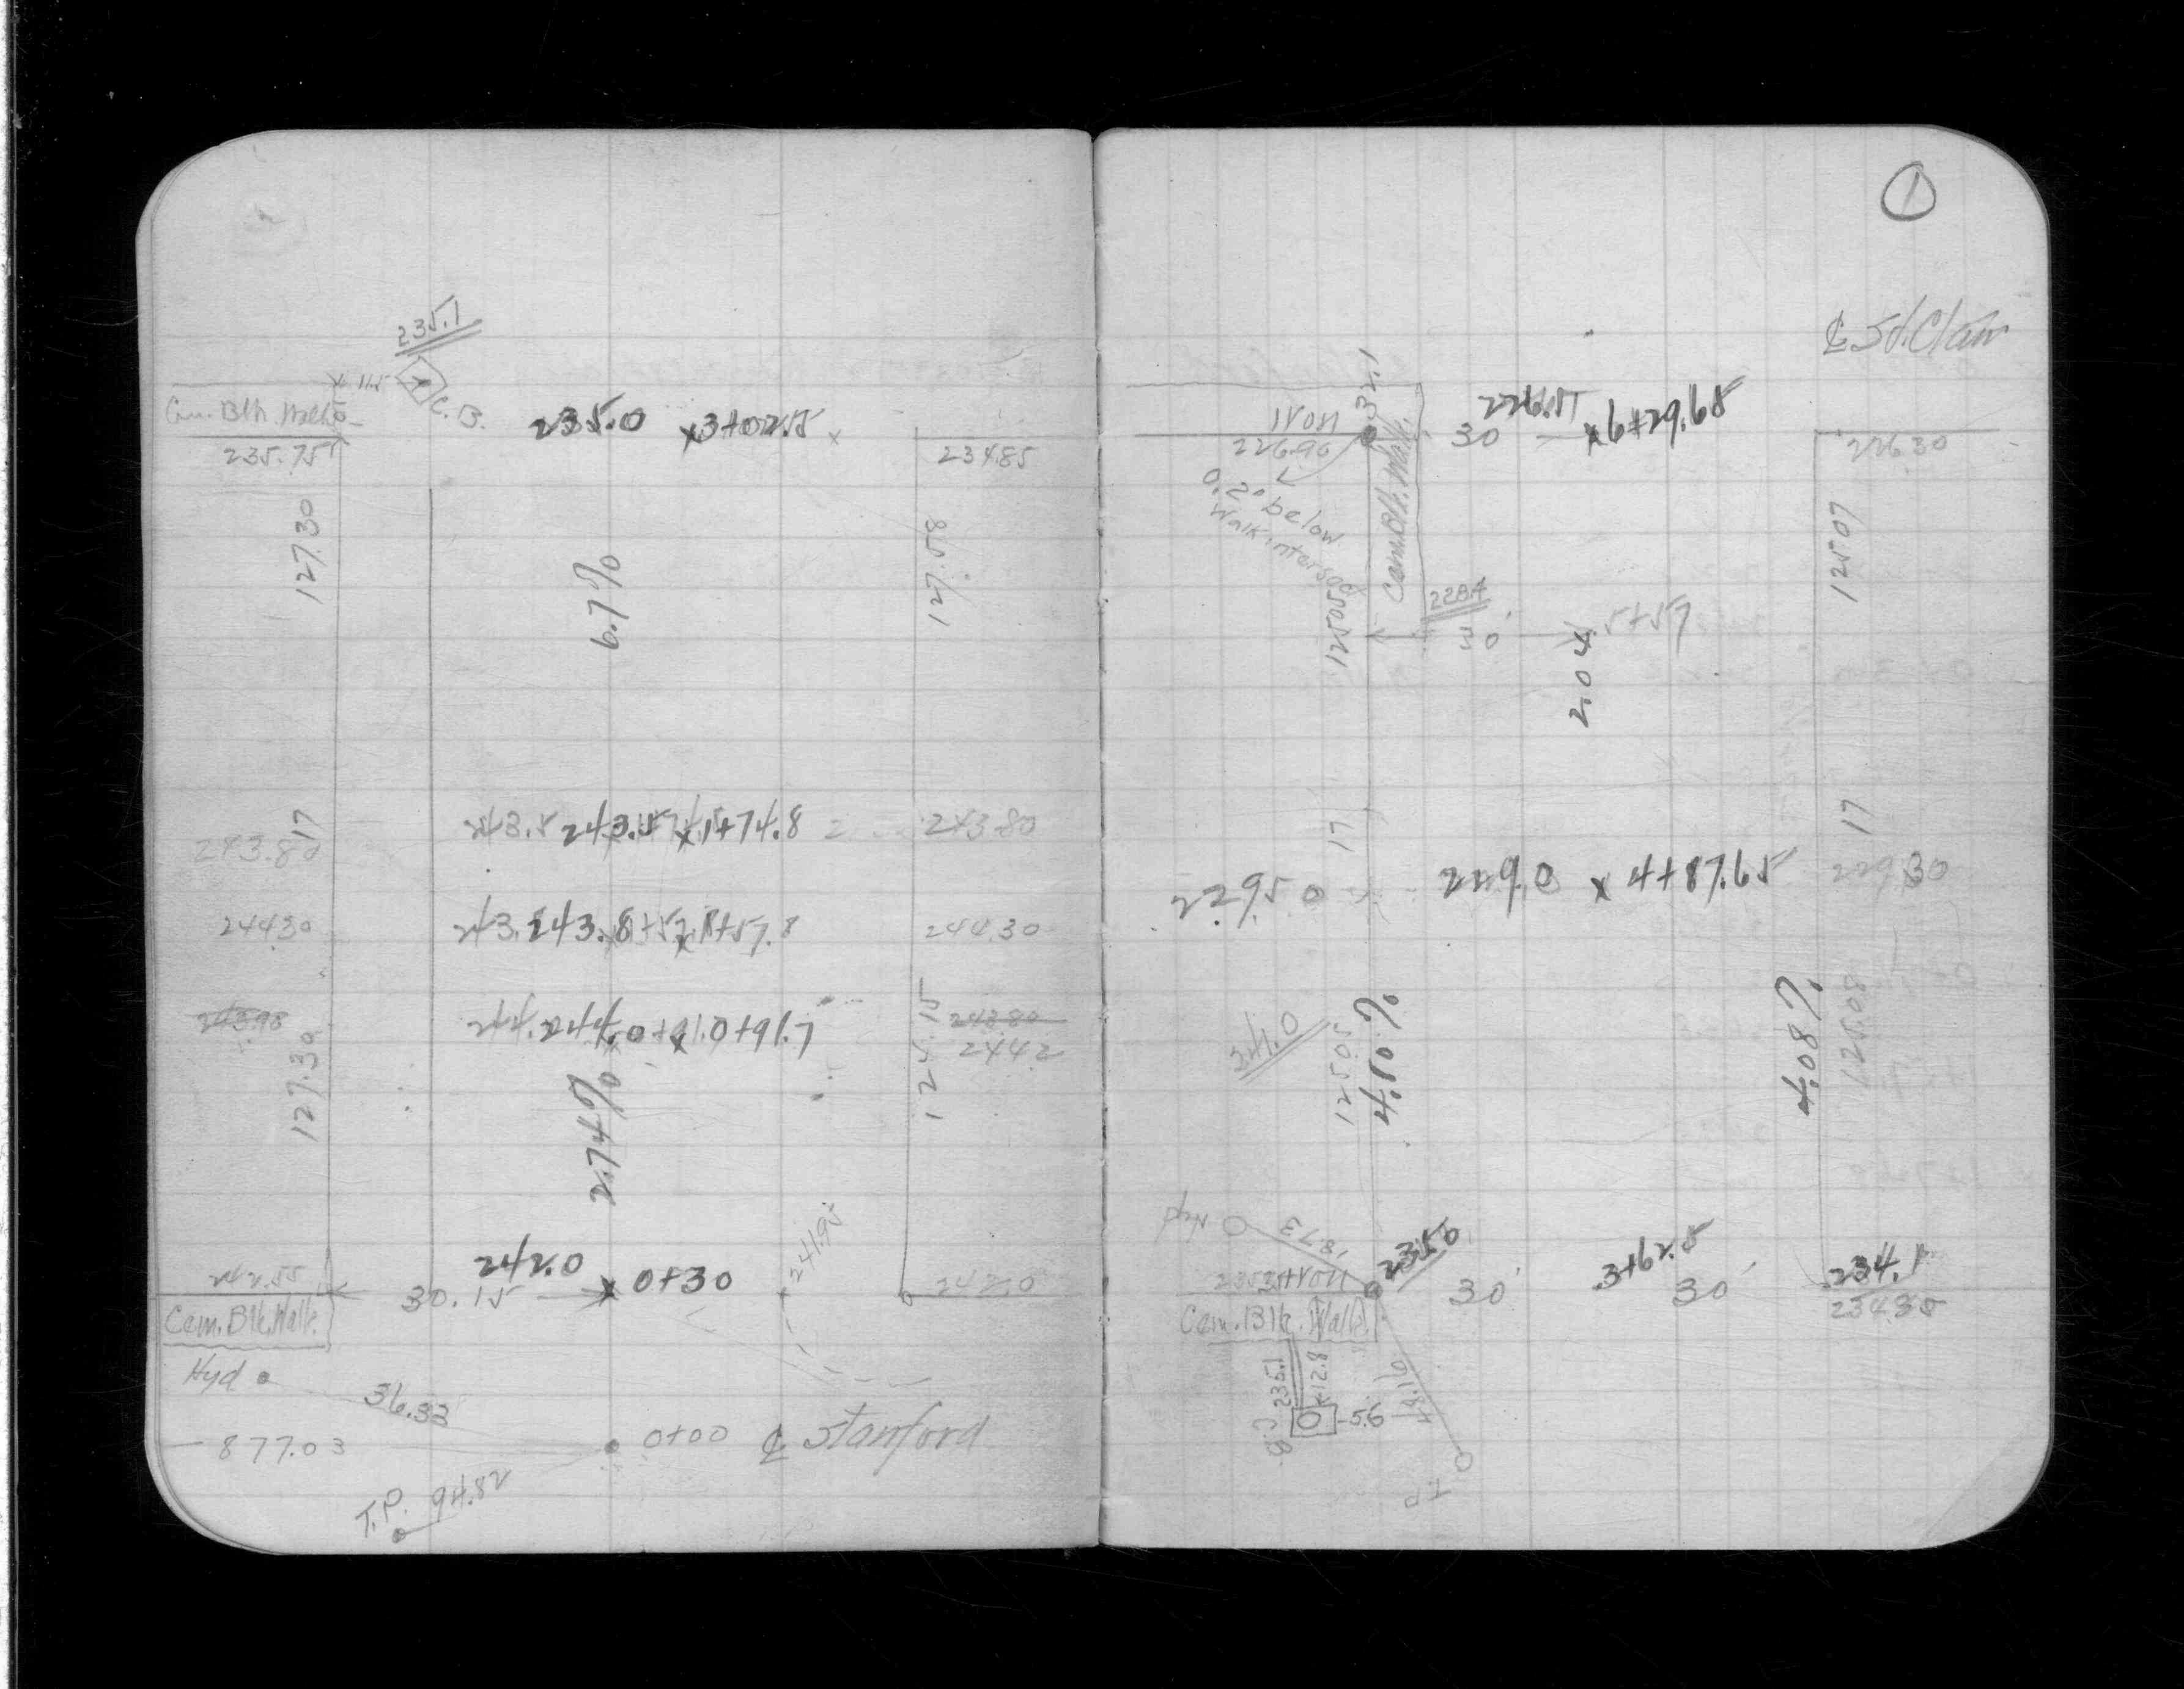 235.1
11.5
C.B.
Cem. Blk. Walk
235.0 x3+02.5
235.75
234.85
127.30
127.58
6.7%
17
243.5 243.5 x1+74.8
243.80
243.80
244.30
243.8 x1+57.8
244.30
243.98
244.0 x0+91.7
243.80
244.2
127.30
124.15
2.74%
241.95
242.55
242.0
30.15 x 0+30
242.0
Cem. Blk. Walk.
Hyd
36.33
877.03
0+00 ℄ Stanford
T.P. 94.82
1
℄ St. Clair
32.1
Iron
226.90
30 226.5 x6+29.65
226.30
0.20 below
Walk intersec
Cem. Blk. Walk.
125.05
125.07
228.4
30' 5+57
2.04
17
17
229.50
229.0 x 4+87.65
229.30
241.0
125.05
4.80%
4.08%
125.08
Hyd
18.73
235.0
235.35 Iron
30' 3+62.5 30'
234.1
234.35
Cem. Blk. Walk.
235.1
12.8
C.B.
5.6
48.16
T.P.